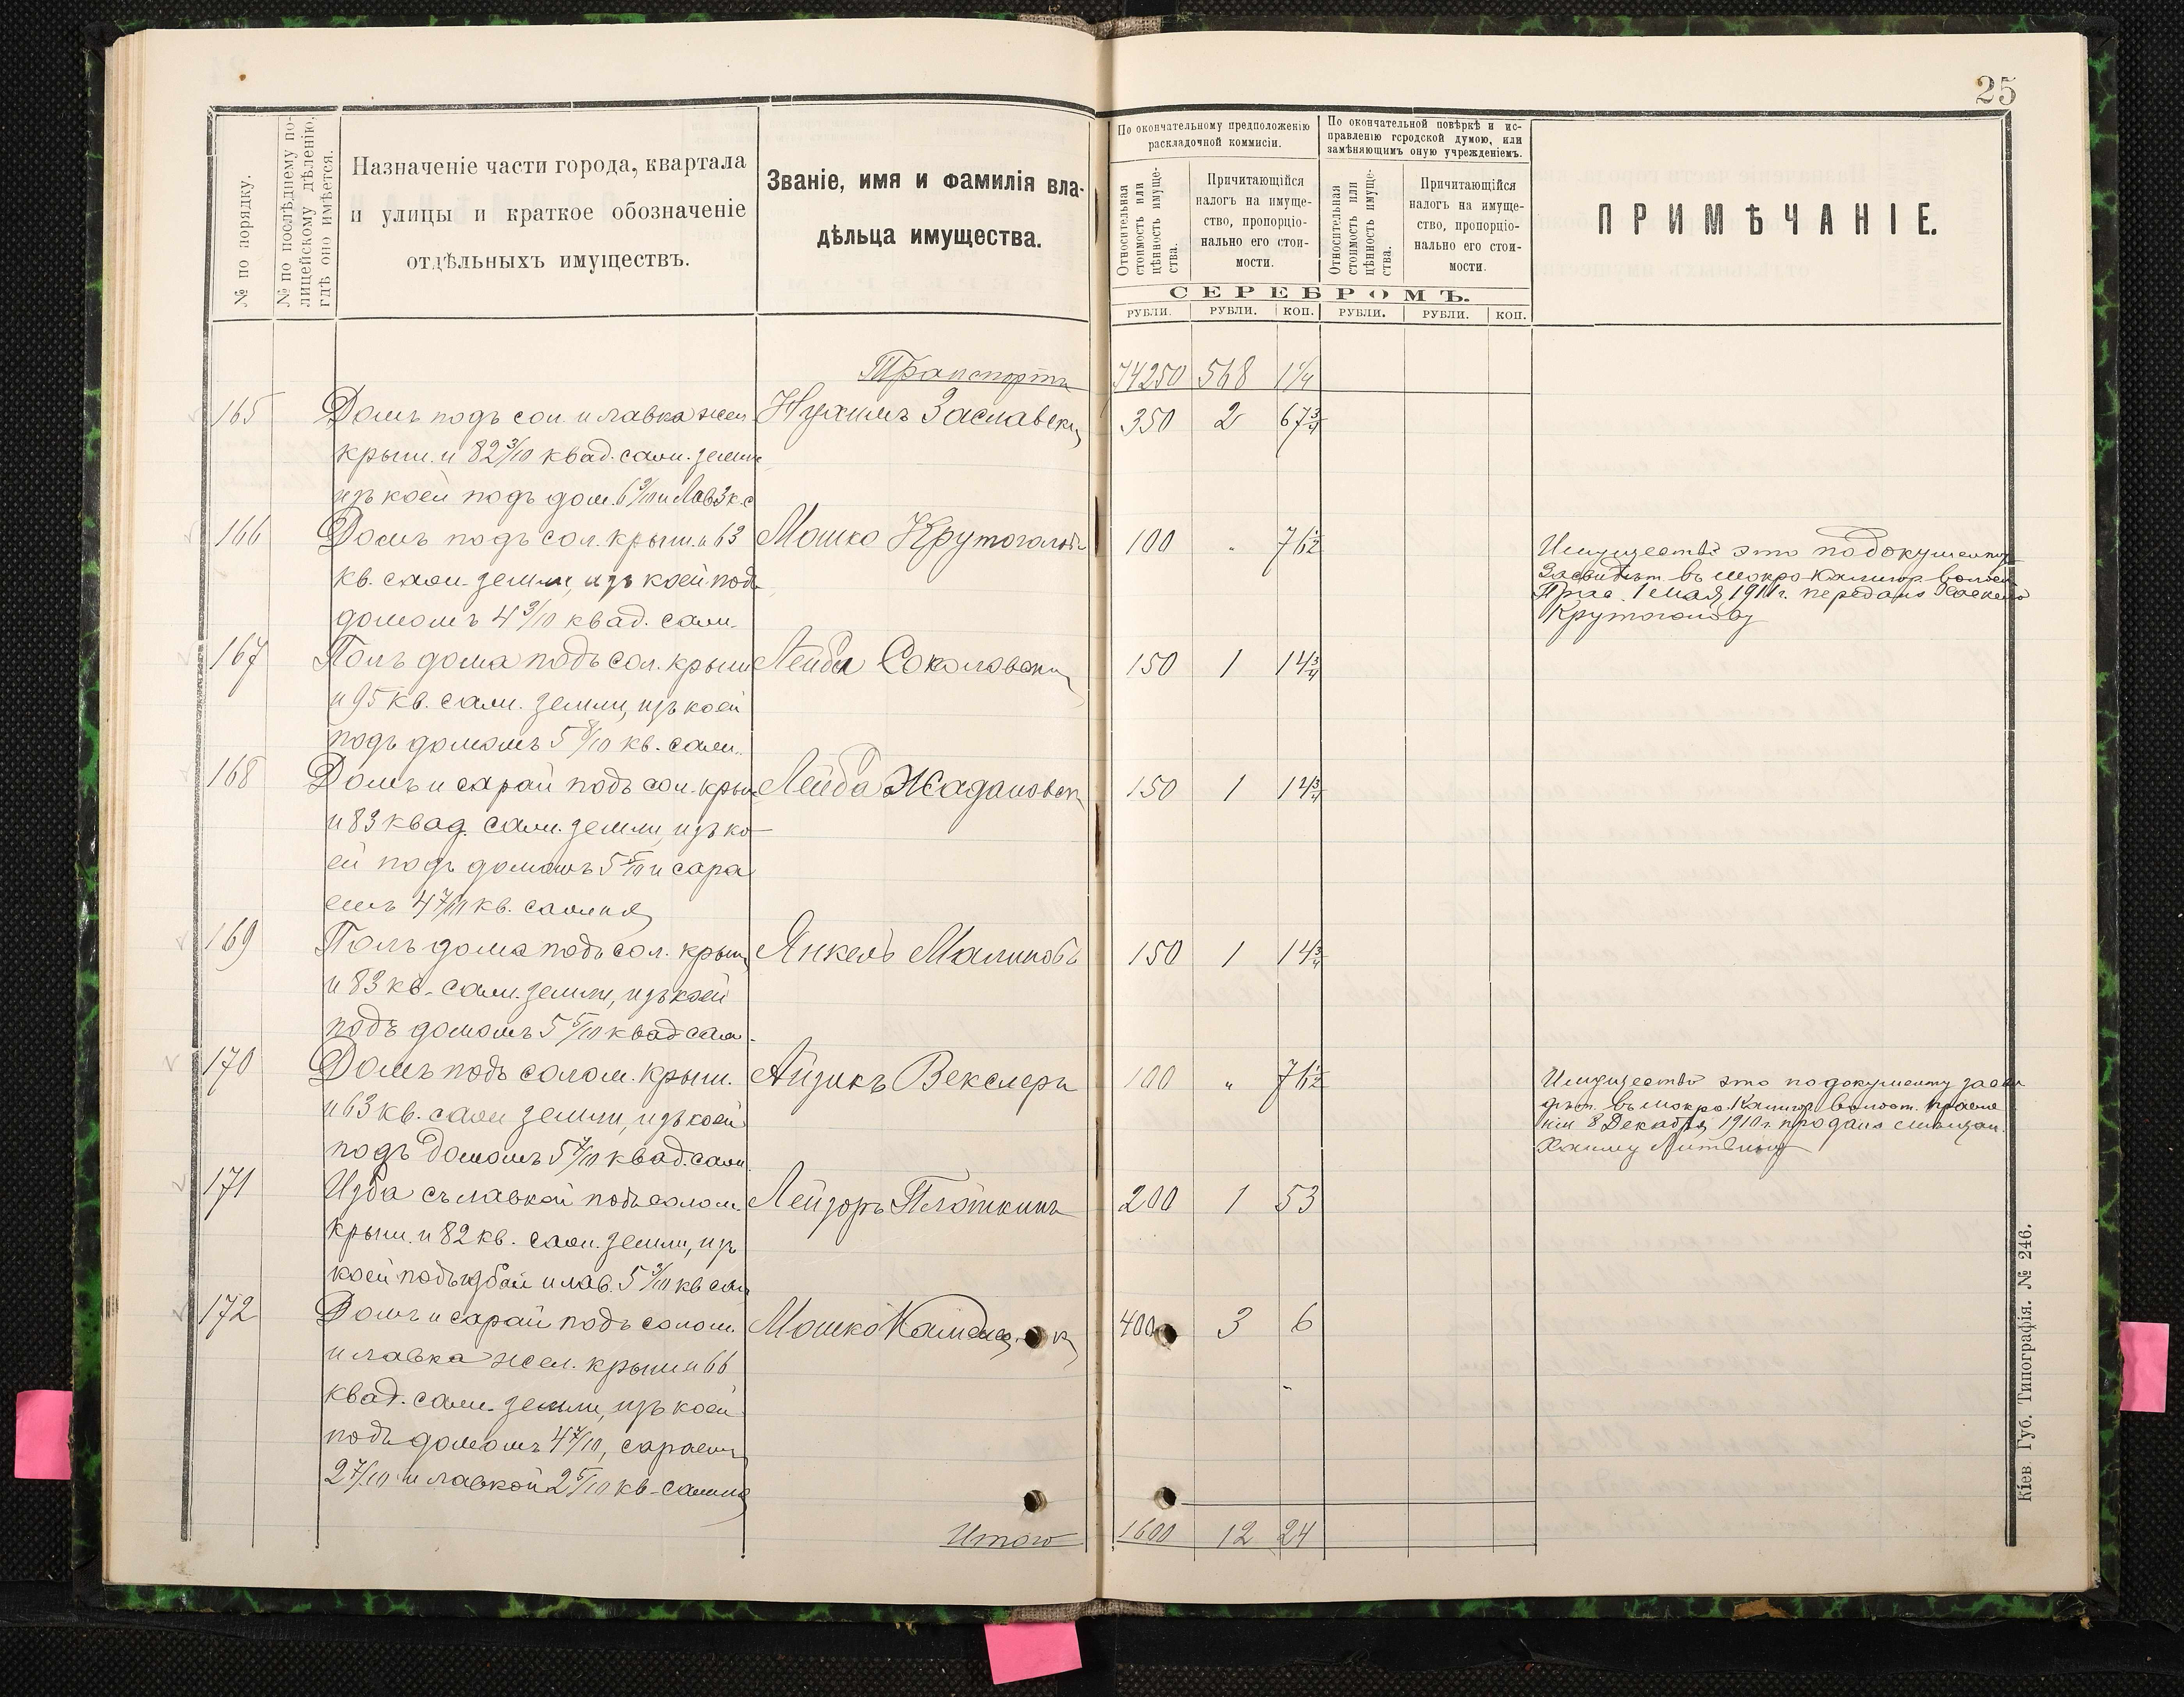 25
№ по порядку.
№ по послѣднему по-
лицейскому дѣленію,
гдѣ оно имѣется.
Назначеніе части города, квартала
и улицы и краткое обозначеніе
отдѣльныхъ имуществъ.
Званіе, имя и фамилія вла-
дѣльца имущества.
По окончательному предположенію
раскладочной коммисіи.
По окончательной повѣркѣ и ис-
правленію городской думою, или
замѣняющимъ оную учрежденіемъ.
Относительная
стоимость или
цѣнность имуще-
ства.
Причитающійся
налогъ на имуще-
ство, пропорціо-
нально его стои-
мости.
Относительная
стоимость или
цѣнность имуще-
ства.
Причитающійся
налогъ на имуще-
ство, пропорціо-
нально его стои-
мости.
ПРИМѢЧАНІЕ.
СЕРЕБРОМЪ.
РУБЛИ. РУБЛИ. КОП. РУБЛИ. РУБЛИ. КОП.
Транспортъ 74250 568 1 1/4
165 Домъ подъ сол. и лавка жел. Нухимъ Заславскій 350 2 67 3/4
крыш. и 82 3/10 квад. саж. земли
изъ коей подъ дом. 6 3/10 и лав 3 к. с
166 Домъ подъ сол. крыш. и 63 Мошко Крутоголовъ 100 " 76 1/2
кв. саж. земли, изъ коей подъ
домомъ 4 3/10 квад. саж.
Имущество это по документу
Засвидѣт. въ Мокро-Калигор. волост.
Прав. 1 Мая 1911 г. передано
Крутоголову
167 Полъ дома подъ сол. крыш. Лейба Соколовскій 150 1 14 3/4
и 95 кв. саж. земли, изъ коей
подъ домомъ 5 /10 кв. саж.
168 Домъ и сарай подъ сол. крыш Лейба Жадановск 150 1 14 3/4
и 83 квад. саж. земли, изъ ко-
ей подъ домомъ 5 5/10 и сара
емъ 4 7/10 кв. сажня
169 Полъ дома подъ сол. крыш. Янкель Малиновъ 150 1 14 3/4
и 83 кв. саж. земли, изъ коей
подъ домомъ 5 5/10 квад. саж.
170 Домъ подъ солом. крыш. Айзикъ Векслеръ 100 " 76 1/2
и 63 кв. саж земли, изъ коей
подъ домомъ 5 7/10 квад. саж.
Имущество это по документу засви
дѣт. въ Мокро-Калигор. волост. правле
ніи 8 Декабря 1910 г. продано мѣщан.
Хаиму Литвину
171 Изба съ лавкой подъ солом. Лейзоръ Плоткинъ 200 1 53
крыш. и 82 кв. саж. земли, изъ
коей подъ избой и лав. 5 3/10 кв саж
172 Домъ и сарай подъ солом. Мошко 400 3 6
и лавка жел. крыш. и 66
квад. саж. земли, изъ коей
подъ домомъ 4 7/10, сараемъ
2 7/10 и лавкой 2 5/10 кв. сажня
Итого 1600 12 24
Кіев. Губ. Типографія. № 246.